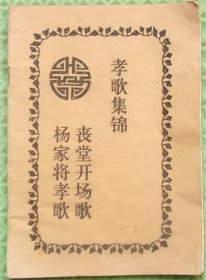 孝歌集锦
丧堂开场歌
杨家将孝歌